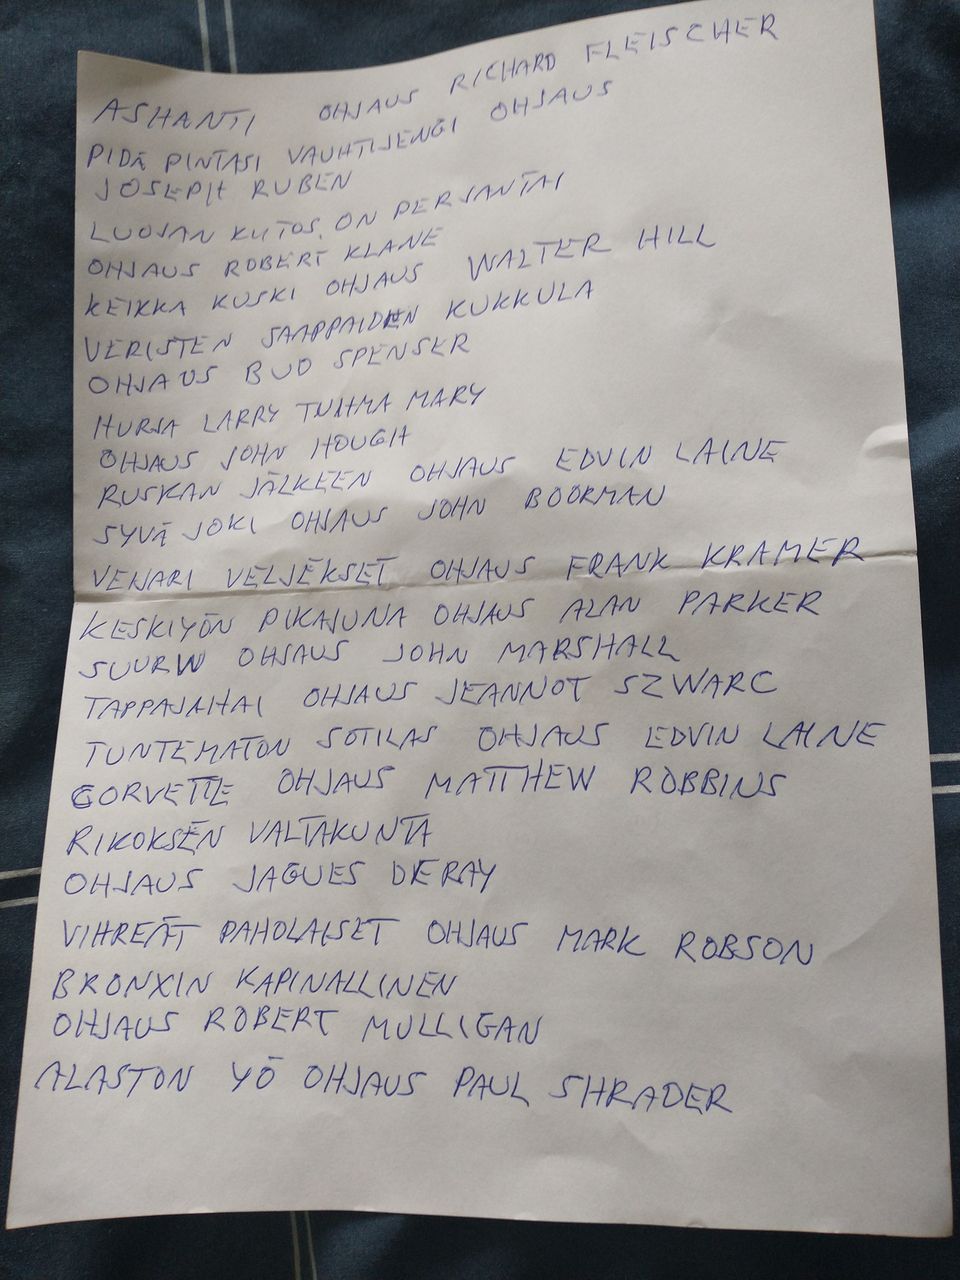 ASHANTI OHJAUS RICHARD FLEISCHER
PIDÄ PINTASI VAUHTIJENGI OHJAUS
JOSEPH RUBEN
LUOJAN KIITOS, ON PERJANTAI
OHJAUS ROBERT KLANE
KEIKKA KUSKI OHJAUS WALTER HILL
VERISTEN SAAPPAIDEN KUKKULA
OHJAUS BUD SPENSER
HURJA LARRY TUHMA MARY
OHJAUS JOHN HOUGH
RUSKAN JÄLKEEN OHJAUS EDVIN LAINE
SYVÄ JOKI OHJAUS JOHN BOORMAN
VEIJARI VELJEKSET OHJAUS FRANK KRAMER
KESKIYÖN PIKAJUNA OHJAUS ALAN PARKER
SUURW OHJAUS JOHN MARSHALL
TAPPAJAHAI OHJAUS JEANNOT SZWARC
TUNTEMATON SOTILAS OHJAUS EDVIN LAINE
CORVETTE OHJAUS MATTHEW ROBBINS
RIKOKSEN VALTAKUNTA
OHJAUS JAGUES DERAY
VIHREÄT PAHOLAISET OHJAUS MARK ROBSON
BRONXIN KAPINALLINEN
OHJAUS ROBERT MULLIGAN
ALASTON YÖ OHJAUS PAUL SHRADER